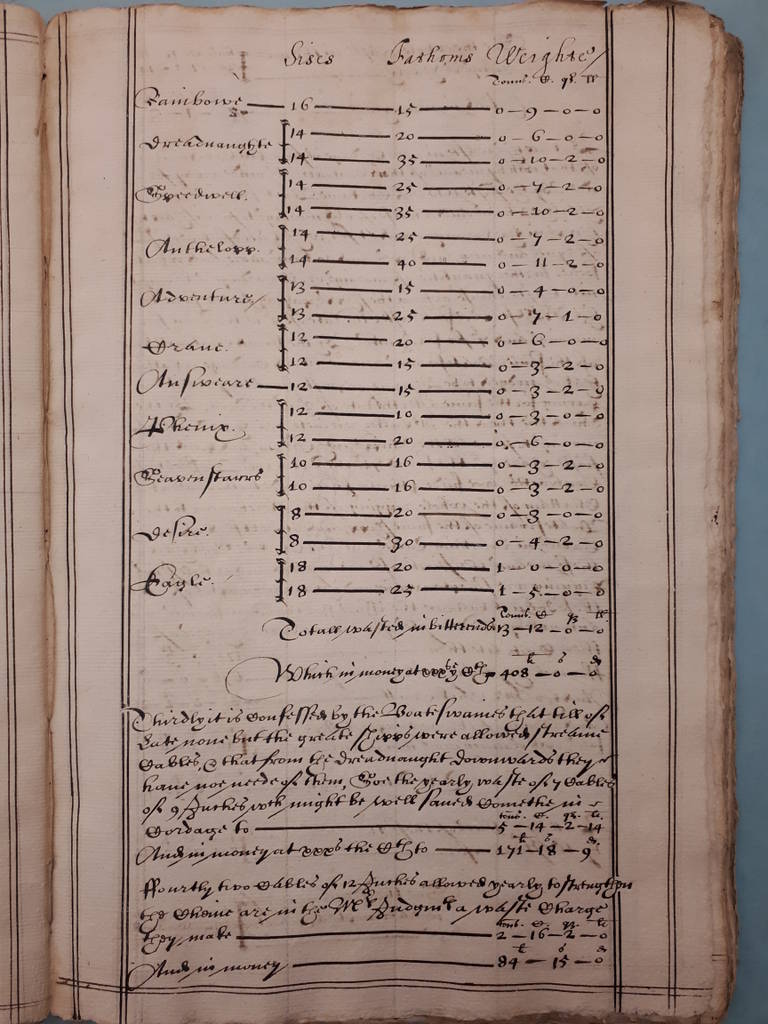 Sises Fathoms Weighte
Tonns. C. qr. ll
Rainbowe — 16 — 15 — 0 — 9 — 0 — 0
Dreadnaughte 14 — 20 — 0 — 6 — 0 — 0
14 — 35 — 0 — 10 — 2 — 0
Speedwell. 14 — 25 — 0 — 7 — 2 — 0
14 — 35 — 0 — 10 — 2 — 0
Anthelopp. 14 — 25 — 0 — 7 — 2 — 0
14 — 40 — 0 — 11 — 2 — 0
Adventure 13 — 15 — 0 — 4 — 0 — 0
13 — 25 — 0 — 7 — 1 — 0
Crane. 12 — 20 — 0 — 6 — 0 — 0
12 — 15 — 0 — 3 — 2 — 0
Answeare — 12 — 15 — 0 — 3 — 2 — 0
Phenix. 12 — 10 — 0 — 3 — 0 — 0
12 — 20 — 0 — 6 — 0 — 0
Seavenstarrs 10 — 16 — 0 — 3 — 2 — 0
10 — 16 — 0 — 3 — 2 — 0
Desire. 8 — 20 — 0 — 3 — 0 — 0
8 — 30 — 0 — 4 — 2 — 0
Eagle. 18 — 20 — 1 — 0 — 0 — 0
18 — 25 — 1 — 5 — 0 — 0
Tonns. C qr ll.
Totall wasted in bitterends 13 — 12 — 0 — 0
li s d
Which in money at xxxs ye Cth 408 — 0 — 0
Thirdly it is confessed by the Boateswaines that till of
Late none but the greate shipps were allowed streame
Cables, & that from the dreadnaught downwards they
have noe neede of them, Soe the yearly waste of 7 Cables
of 9 Inches wch might be well saved cometh in
tons. C. qr. li.
Cordage to — 5 — 14 — 2 — 14
li s. d.
And in money at xxxs the Cth to — 171 — 18 — 9
Ffourtly two Cables of 12 Inches allowed yearly to strengthen
the Cheine are in the Mrs Judgmt a waste Charge
tons. C. qr. li
they make — 2 — 16 — 2 — 0
li s d
And in money — 84 — 15 — 0